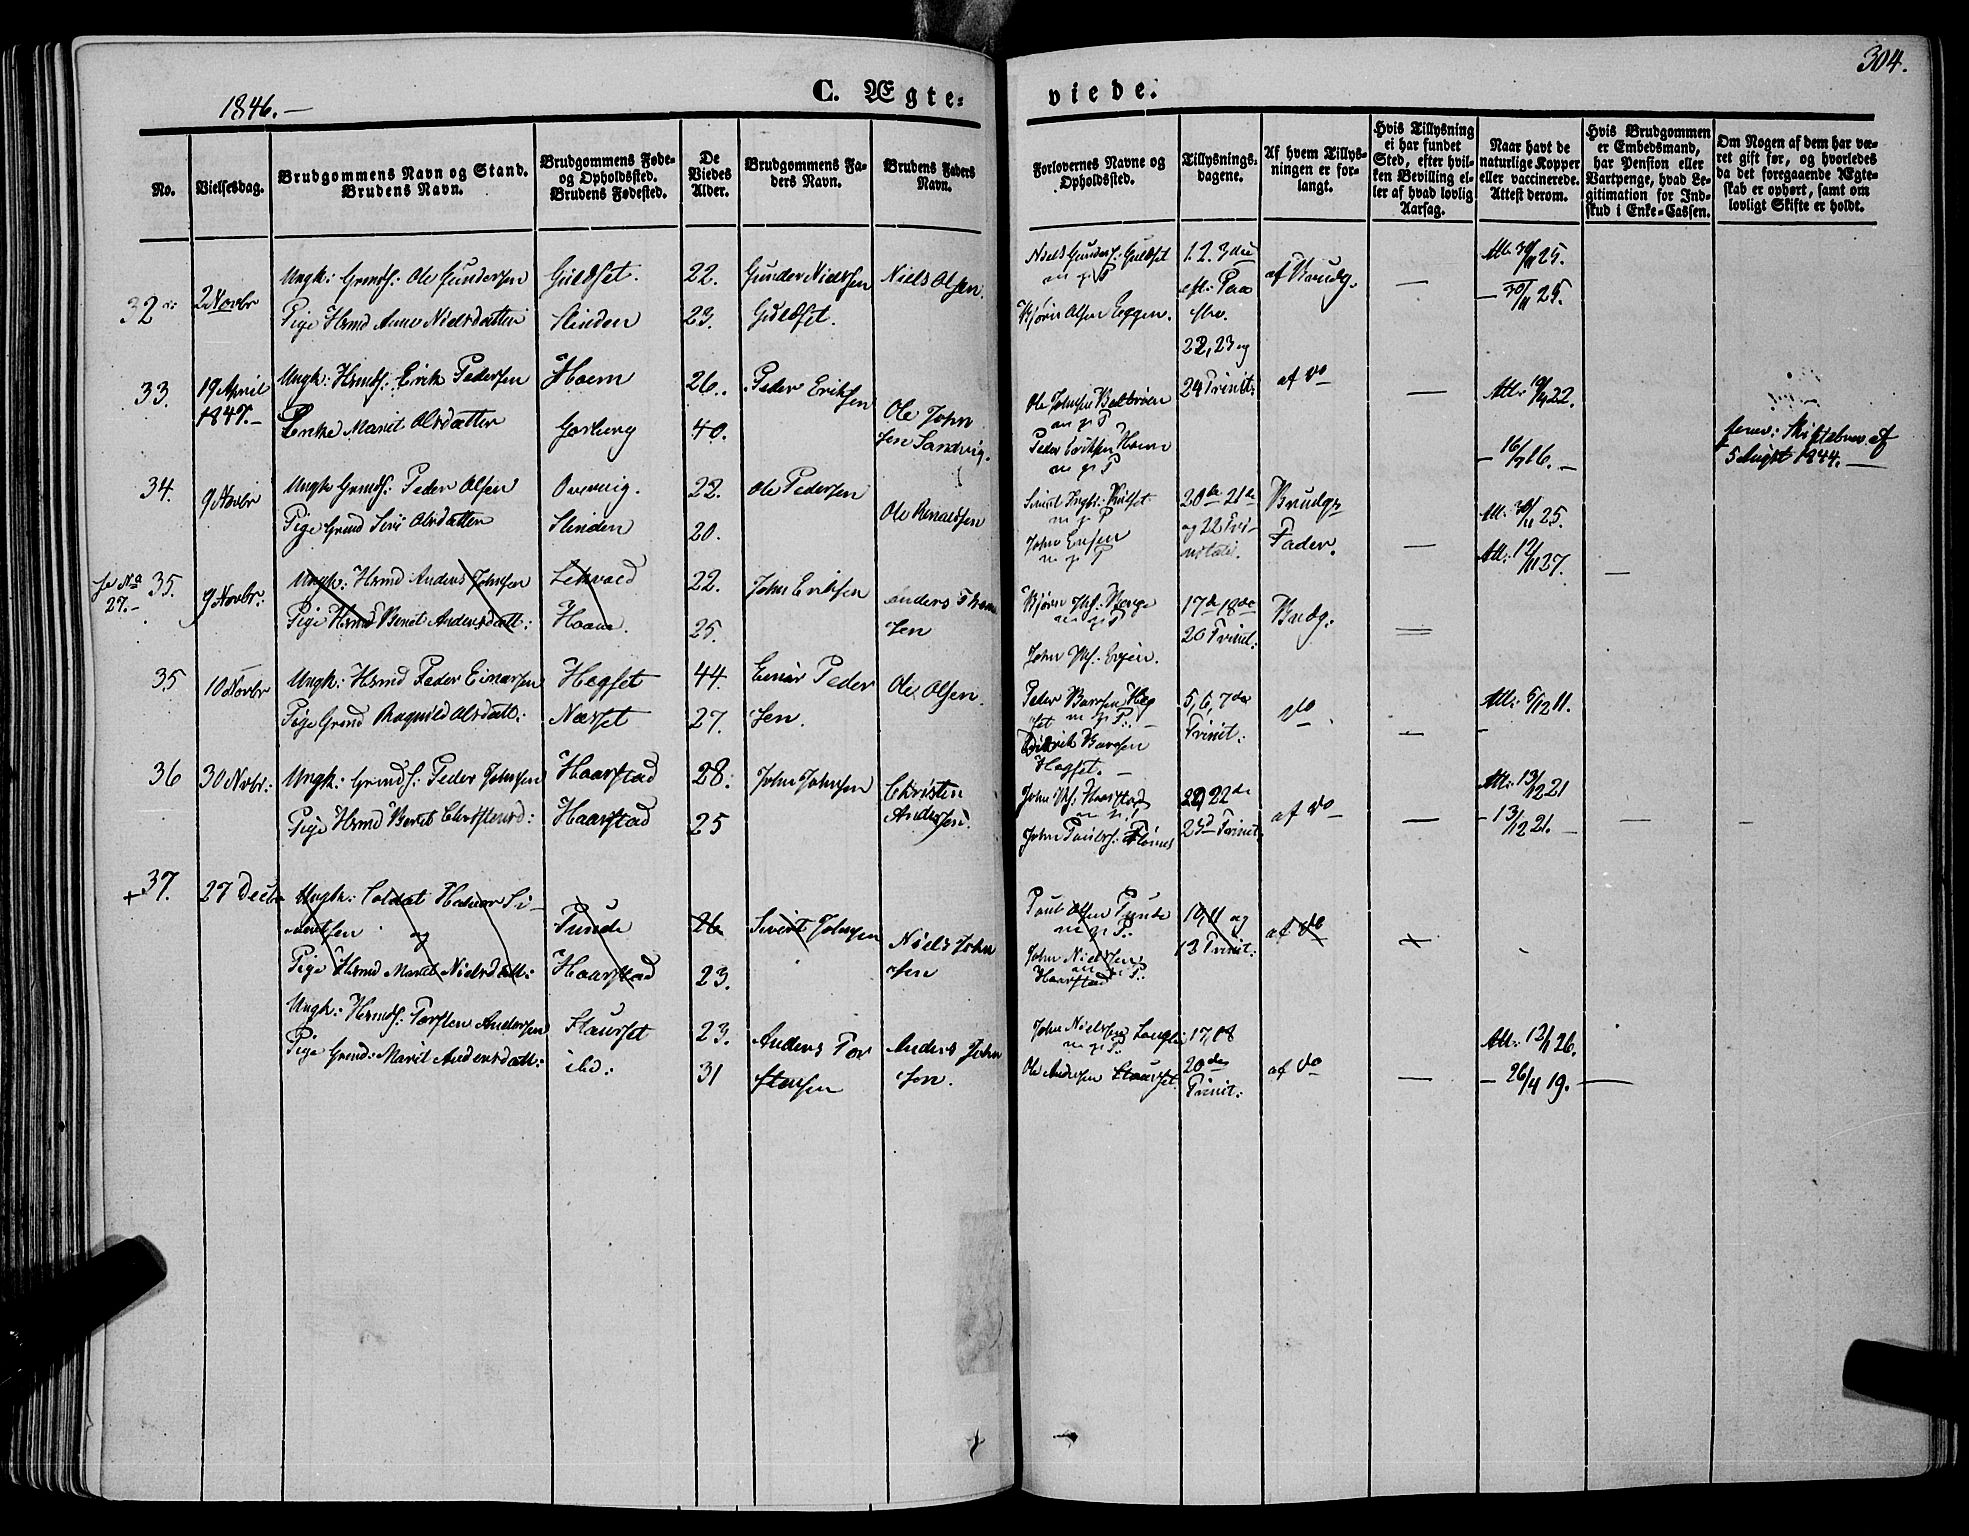 304.
1846.-
C. Ægte-
viede.
No.
Vielsesdag.
Brudgommens Navn og Stand.
Brudens Navn.
Brudgommens Føde-
og Opholdssted.
Brudens Fødested.
De
Viedes
Alder.
Brudgommens Fa-
ders Navn.
Brudens Faders
Navn.
Forlovernes Navne og
Opholdssted.
Tillysnings-
dagene.
Af hvem Tillys-
ningen er for-
langt.
Hvis Tillysning
ei har fundet
Sted, efter hvil-
ken Bevilling el-
ler af hvad lovlig
Aarsag.
Naar havt de
naturlige Kopper
eller vaccinerede.
Attest derom.
Hvis Brudgommen
er Embedsmand,
har Pension eller
Vartpenge, hvad Le-
gitimation for Ind-
skud i Enke-Cassen.
Om Nogen af dem har væ-
ret gift før, og hvorledes
da det foregaaende Ægte-
skab er ophørt, samt om
lovligt Skifte er holdt.
32
2 Novbr
Ungk: Grmdf: Ole Gundersen
Pige Hsmd Anne Nielsdatter
Guldset.
Slinden
22.
23.
Gunder Nielsen
Guldset.
Niels Olsen.
Niels Gunders: Guldset
m g P
Bjørn Olsen Eggen.
1. 2. 3die
af Brudg.
—
Att: 30/11 25.
— 30/11 25.
33.
19 April
1847.-
Ungk: Hsmdf: Erik Pedersen
Enke Marit Olsdatter
Hoem
26.
40.
Peder Eriksen
Ole John
sen Sandvig.
Ole Johnsen
m g P
Peder Eriksen Hoem
m g P
22, 23 og
24 Trinit:
af do
—
Att: 19/9 22.
— 16/9 16. —
Skiftebrev af
5 August 1844. —
34.
9 Novbr
Ungk Grmdf: Peder Olsen
Pige Grmd Siri Olsdatter
Overvig.
Slinden
22.
20.
Ole Pedersen
Ole
m g P
John
m g P
20de 21de
og 22 Tri-
nitatis.
Brudgs
Fader.
—
Att: 30/11 25.
Att: 12/11 27.
—
se No
27.-
35.
9 Novbr:
Ungk: Hsmd Anders Johnsen
Pige Hsmd Beret Andersdatt:
Haave.
22.
25.
John Eriksen
Anders
sen
Bjørn
m g P
John
17de 18de
20 Trinit:
Brudg:
35
10 Novbr
Ungk: Hsmd Peder Einarsen
Pige Grmd Ragnild Olsdatt:
Hegset
Næsset
44.
27.
Einar Peder
sen.
Ole Olsen.
Peder Baarsen Heg
set m g P: —
Baarsen
Hegset. —
5, 6, 7de
Trinit:
do
—
Att: 5/12 11.
—
36
30 Nvbr:
Ungk: Grmdf: Peder Johnsen
Pige Hsmd Beret Christensd:
Haarstad
Haarstad
28.
25
John Johnsen
Christen
Andersen.
John Haarstad
m g P
John Paulss:
22de
23d Trinit:
af do
—
Att: 13/12 21
— 13/12 21. —
—
—
+ 37.
27 Decbr
Ungk: Soldat Halvor Si-
vertsen og
Pige Hsmd Marit Nielsdatt:
Tunde
Haarstad
26
23.
Sivert Johnsen
Niels John
sen
Paul Olsen Tunde
m g P:
John Nielsen
Haarstad m g P:
10, 11 og
13 Trinit:
af do
Ungk: Hsmdf: Torsten Andersen
Pige Grmd: Marit Andersdatt:
Staurset
ibd:
23.
31
Anders Tor
stensen
Anders John
sen.
John Nielssen
m g P:
Ole Andersen Staurset.
17, 18
20de
Trinit:
af do
—
Att: 12/1 26.
— 26/4 19. —